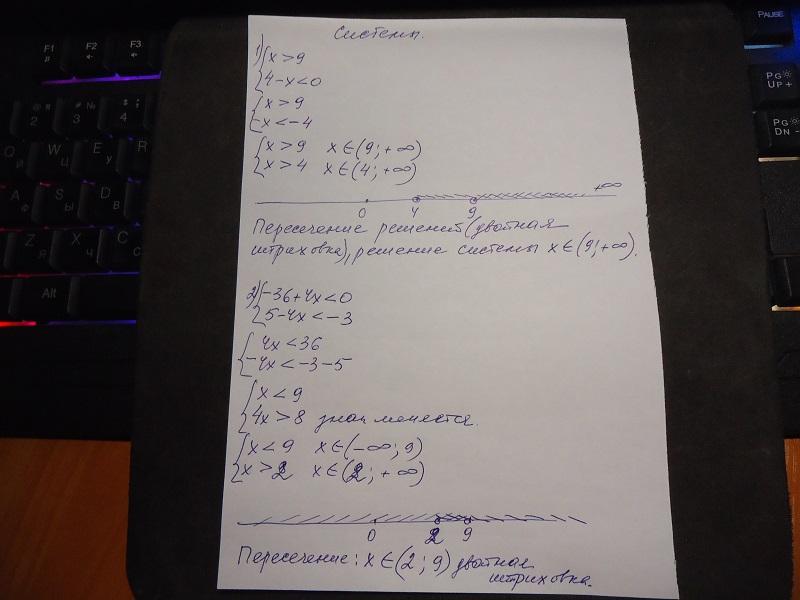 Системы.
1) { x > 9
4 - x < 0
{ x > 9
-x < -4
{ x > 9 x ∈ (9; +∞)
x > 4 x ∈ (4; +∞)
0 4 9 +∞
Пересечение решений (двойная
штриховка), решение системы x ∈ (9; +∞).
2) { -36 + 4x < 0
5 - 4x < -3
{ 4x < 36
-4x < -3 - 5
{ x < 9
4x > 8 знак меняется.
{ x < 9 x ∈ (-∞; 9)
x > 2 x ∈ (2; +∞)
0 2 9
Пересечение: x ∈ (2; 9) двойная
штриховка.
F1
F2
F3
PAUSE
PG UP +
PG DN -
2
3 №
4 ;
Q Й
W Ц
E У
R
A Ф
S Ы
D В
Z Я
X Ч
C С
Alt